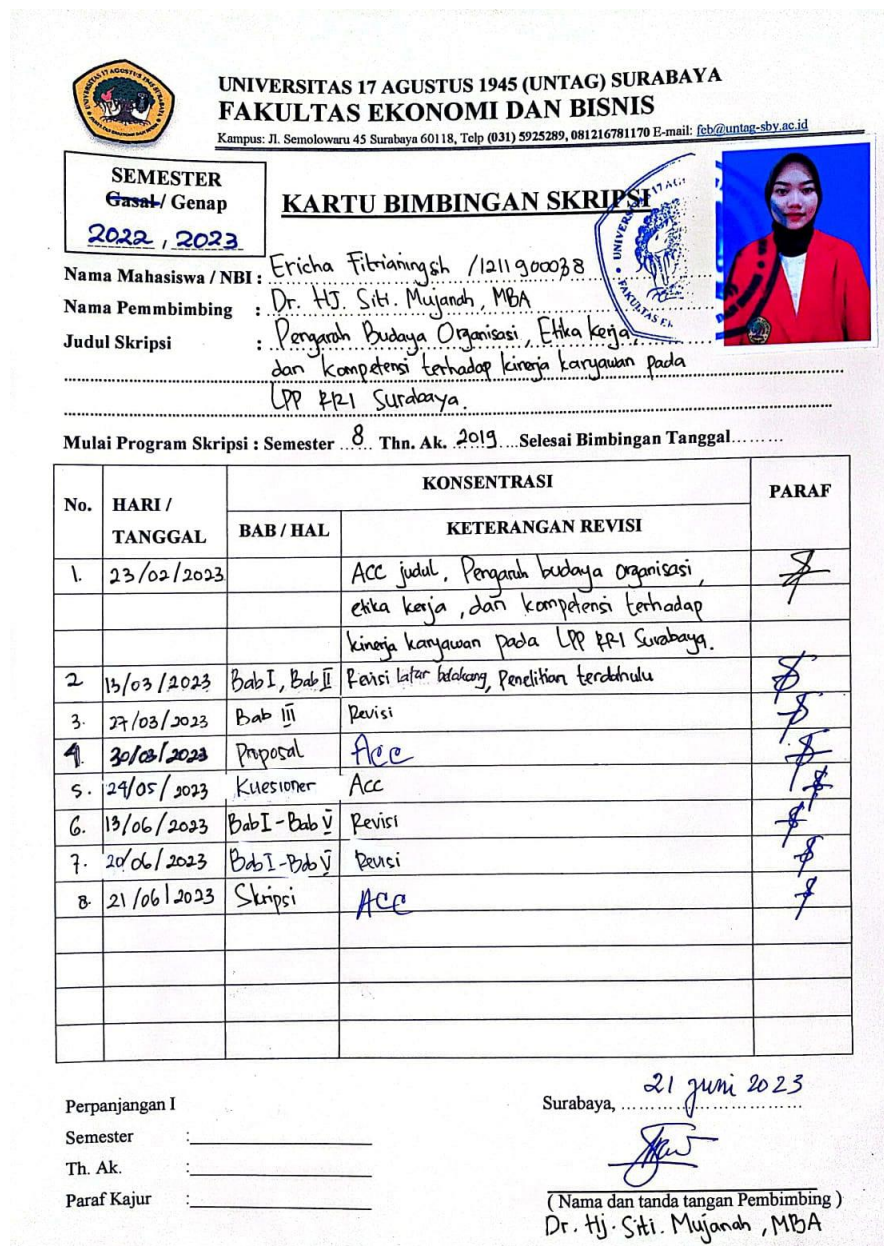 UNIVERSITAS 17 AGUSTUS 1945 (UNTAG) SURABAYA
FAKULTAS EKONOMI DAN BISNIS
Kampus: Jl. Semolowaru 45 Surabaya 60118, Telp (031) 5925289, 081216781170 E-mail: feb@untag-sby.ac.id
SEMESTER
Gasal / Genap
2022, 2023
KARTU BIMBINGAN SKRIPSI
Nama Mahasiswa / NBI : Ericha Fitrianingsh / 1211900038
Nama Pemmbimbing : Dr. HJ. Siti. Mujanah, MBA
Judul Skripsi : Pengaruh Budaya Organisasi, Etika kerja,
dan kompetensi terhadap kinerja karyawan pada
LPP RRI Surabaya.
Mulai Program Skripsi : Semester 8 Thn. Ak. 2019 Selesai Bimbingan Tanggal.........
No. HARI / TANGGAL KONSENTRASI PARAF
BAB / HAL KETERANGAN REVISI
1. 23/02/2023 ACC judul, Pengaruh budaya organisasi,
etika kerja, dan kompetensi terhadap
kinerja karyawan pada LPP RRI Surabaya.
2 13/03/2023 Bab I, Bab II Revisi latar belakang, Penelitian terdahulu
3. 27/03/2023 Bab III Revisi
4. 30/03/2023 Proposal Acc
5. 24/05/2023 Kuesioner Acc
6. 13/06/2023 Bab I - Bab V Revisi
7. 20/06/2023 Bab I - Bab V Revisi
8. 21/06/2023 Skripsi ACC
Perpanjangan I
Semester :
Th. Ak. :
Paraf Kajur :
Surabaya, 21 Juni 2023
( Nama dan tanda tangan Pembimbing )
Dr. Hj. Siti. Mujanah, MBA